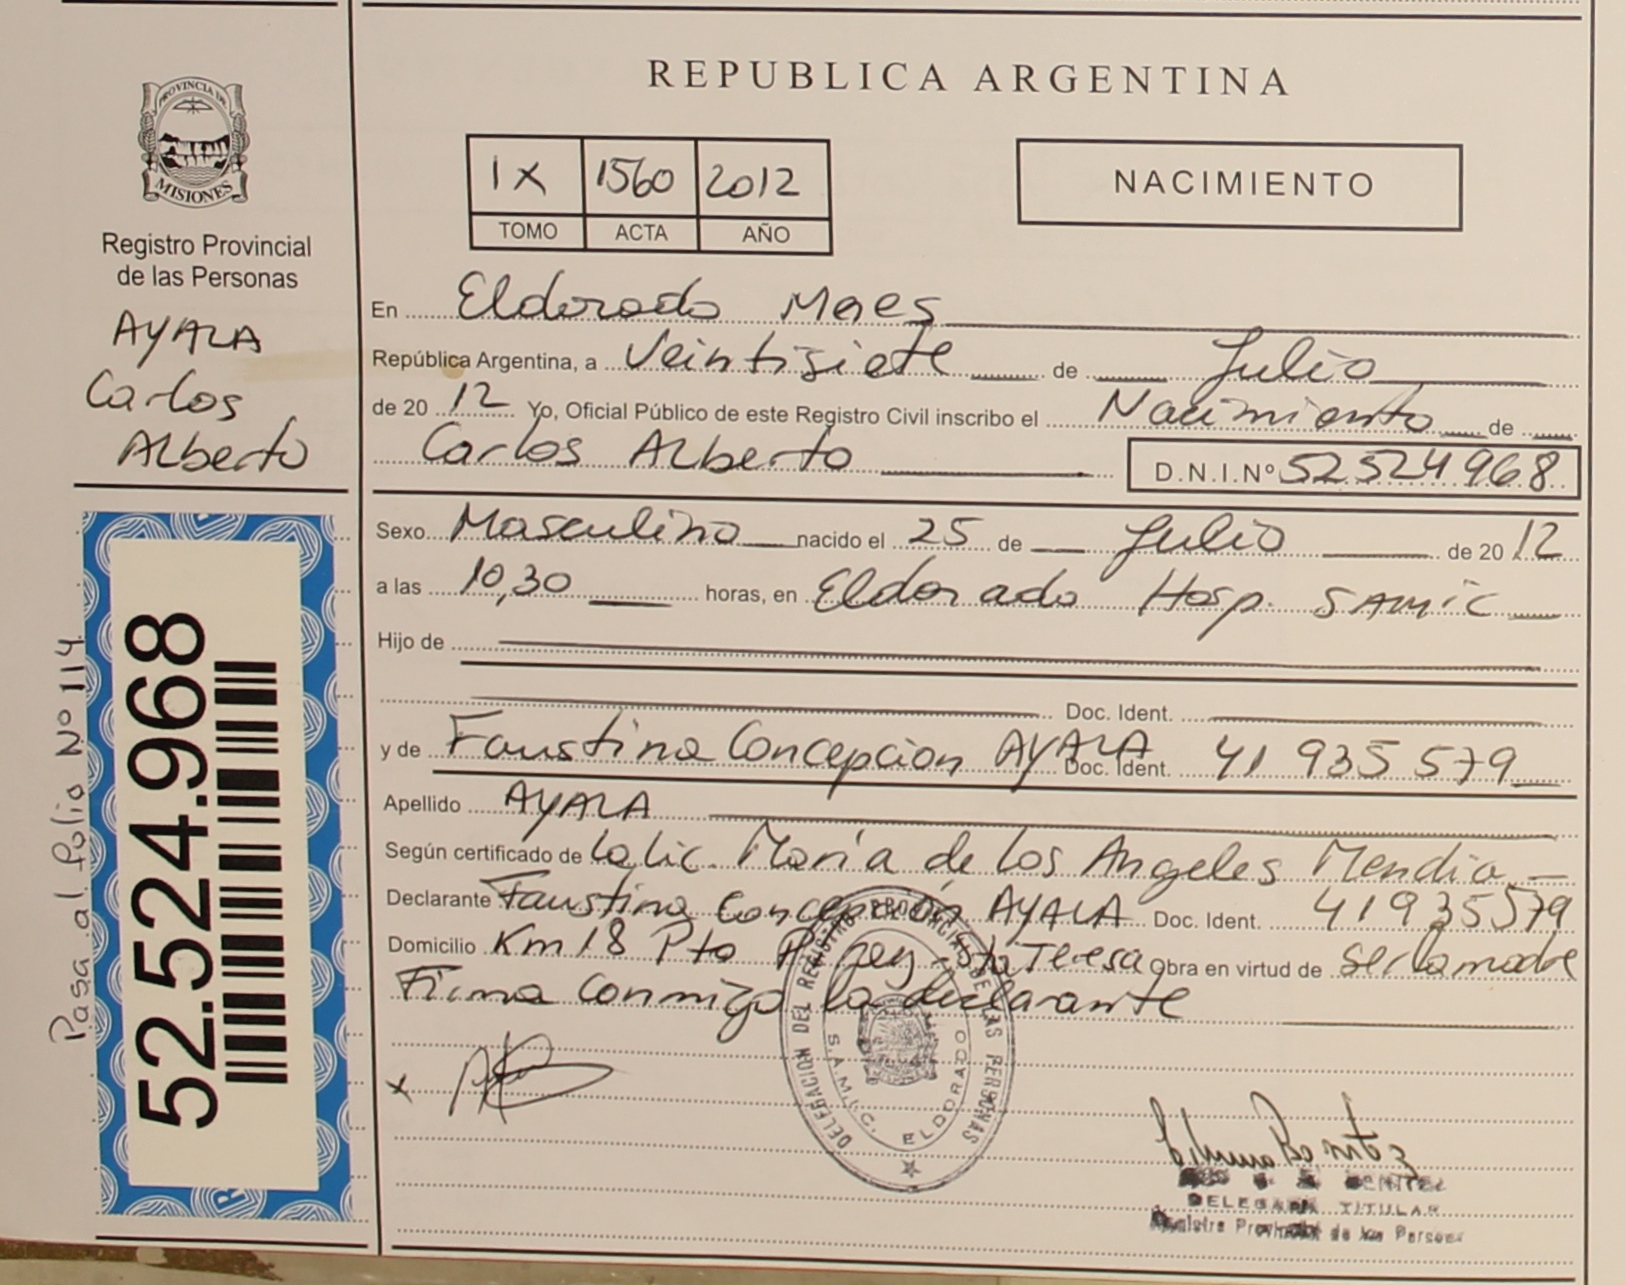 REPUBLICA ARGENTINA
PROVINCIA DE
MISIONES
Registro Provincial
de las Personas
AYALA
Carlos
Alberto
Pasa al Folio Nº 114
52.524.968
IX 1560 2012
TOMO ACTA AÑO
NACIMIENTO
En Eldorado Mnes
República Argentina, a Veintisiete de Julio
de 20 12 Yo, Oficial Público de este Registro Civil inscribo el Nacimiento de
Carlos Alberto D.N.I.Nº 52524968
Sexo Masculino nacido el 25 de Julio de 20 12
a las 10,30 horas, en Eldorado Hosp. SAMIC
Hijo de
Doc. Ident.
y de Faustina Concepcion AYALA Doc. Ident. 41 935 579
Apellido AYALA
Según certificado de La Lic. María de Los Angeles Mendia
Declarante Faustina Concepción AYALA Doc. Ident. 41935579
Domicilio Km 18 Pto Sta Teresa Obra en virtud de ser la madre
Firma conmigo la declarante
x
DELEGACION DEL REGISTRO PROVINCIAL DE LAS PERSONAS
S.A.M.I.C. ELDORADO
BENITEZ
DELEGADA TITULAR
Registro Provincial de las Personas